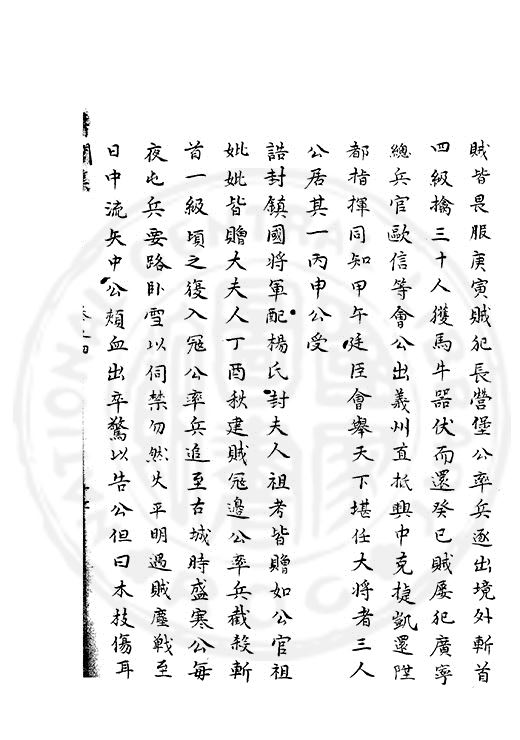 賊皆畏服庚寅賊犯長營堡公率兵逐出境外斬首
四級擒三十人獲馬牛器伏而還癸巳賊屡犯廣寧
總兵官歐信等會公出義州直抵興中克捷凱還陞
都指揮同知甲午廷臣會舉天下堪任大將者三人
公居其一丙申公受
誥封鎮國將軍配楊氏封夫人祖考皆贈如公官祖
妣妣皆贈大夫人丁酉秋建賊冦邊公率兵截殺斬
首一級頃之復入冦公率兵追至古城時盛寒公每
夜屯兵要路卧雪以伺禁勿然火平明遇賊鏖戦至
日中流矢中公頰血出卒驚以告公但曰木枝傷耳